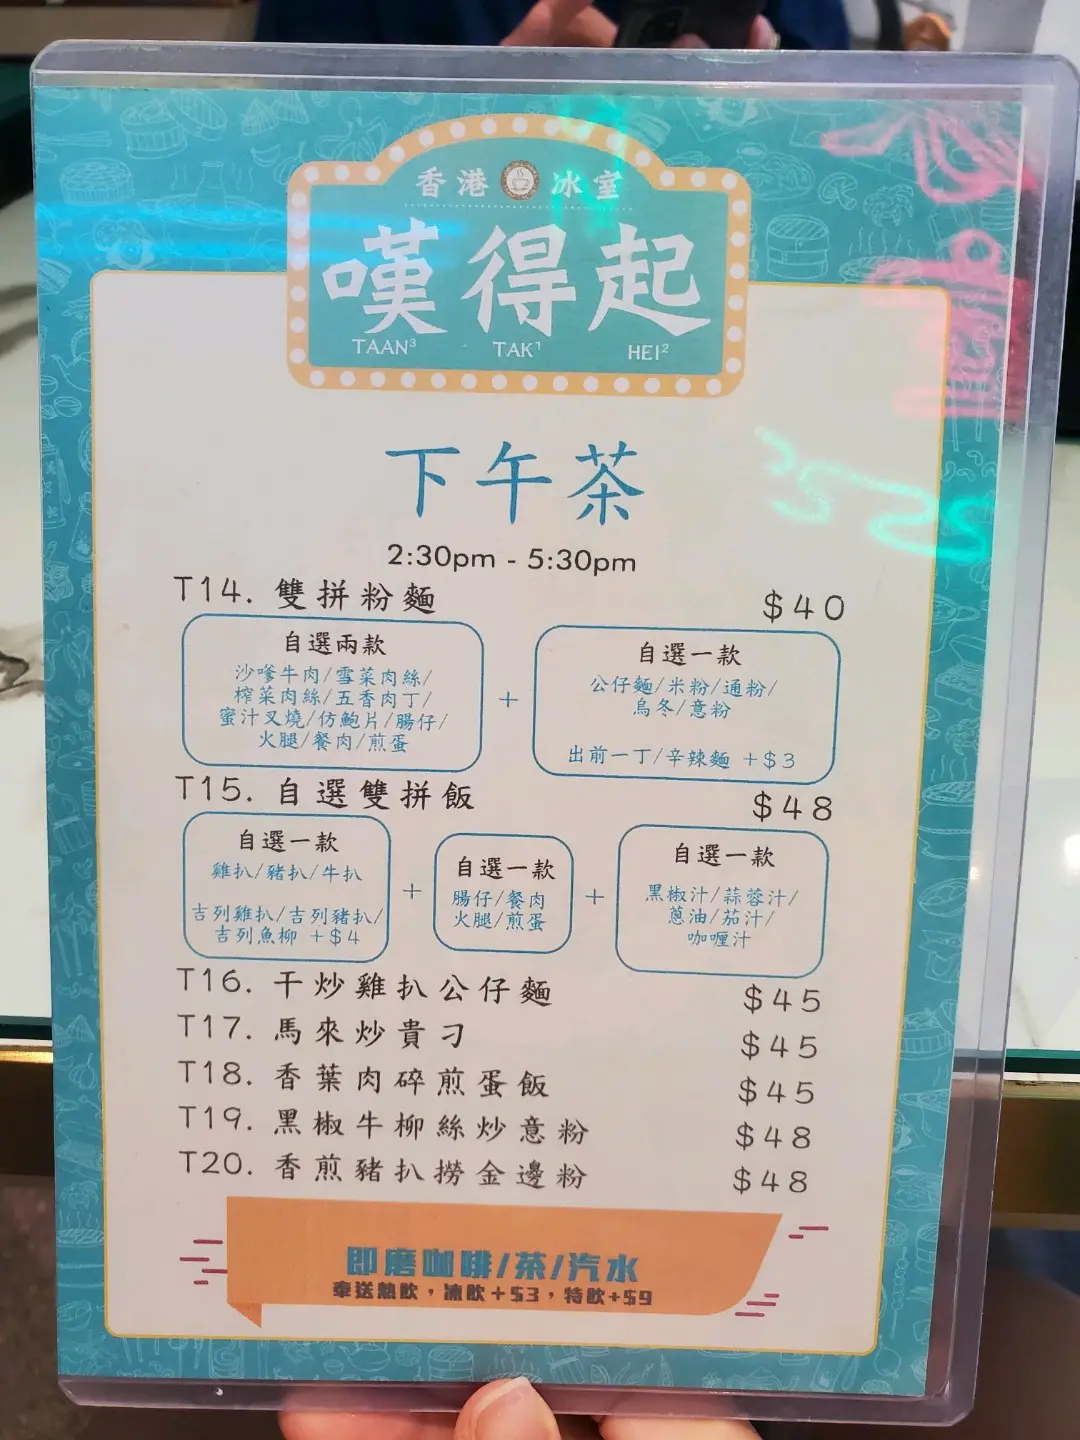 香港 冰室
嘆得起
TAAN³ TAK¹ HEI²
下午茶
2:30pm - 5:30pm
T14. 雙拼粉麵 $40
自選兩款
沙嗲牛肉/雪菜肉絲/
榨菜肉絲/五香肉丁/
蜜汁叉燒/仿鮑片/腸仔/
火腿/餐肉/煎蛋
+
自選一款
公仔麵/米粉/通粉/
烏冬/意粉
出前一丁/辛辣麵 +$3
T15. 自選雙拼飯 $48
自選一款
雞扒/豬扒/牛扒
吉列雞扒/吉列豬扒/
吉列魚柳 +$4
+
自選一款
腸仔/餐肉
火腿/煎蛋
+
自選一款
黑椒汁/蒜蓉汁/
蔥油/茄汁/
咖喱汁
T16. 干炒雞扒公仔麵 $45
T17. 馬來炒貴刁 $45
T18. 香葉肉碎煎蛋飯 $45
T19. 黑椒牛柳絲炒意粉 $48
T20. 香煎豬扒撈金邊粉 $48
即磨咖啡/茶/汽水
奉送熱飲，凍飲+$3，特飲+$9